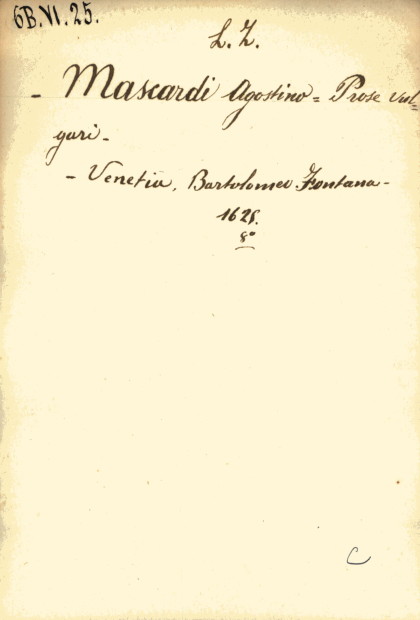 6B.VI.25.
L. Z.
- Mascardi Agostino = Prose vul=
gari -
- Venetia, Bartolomeo Fontana -
8°
C